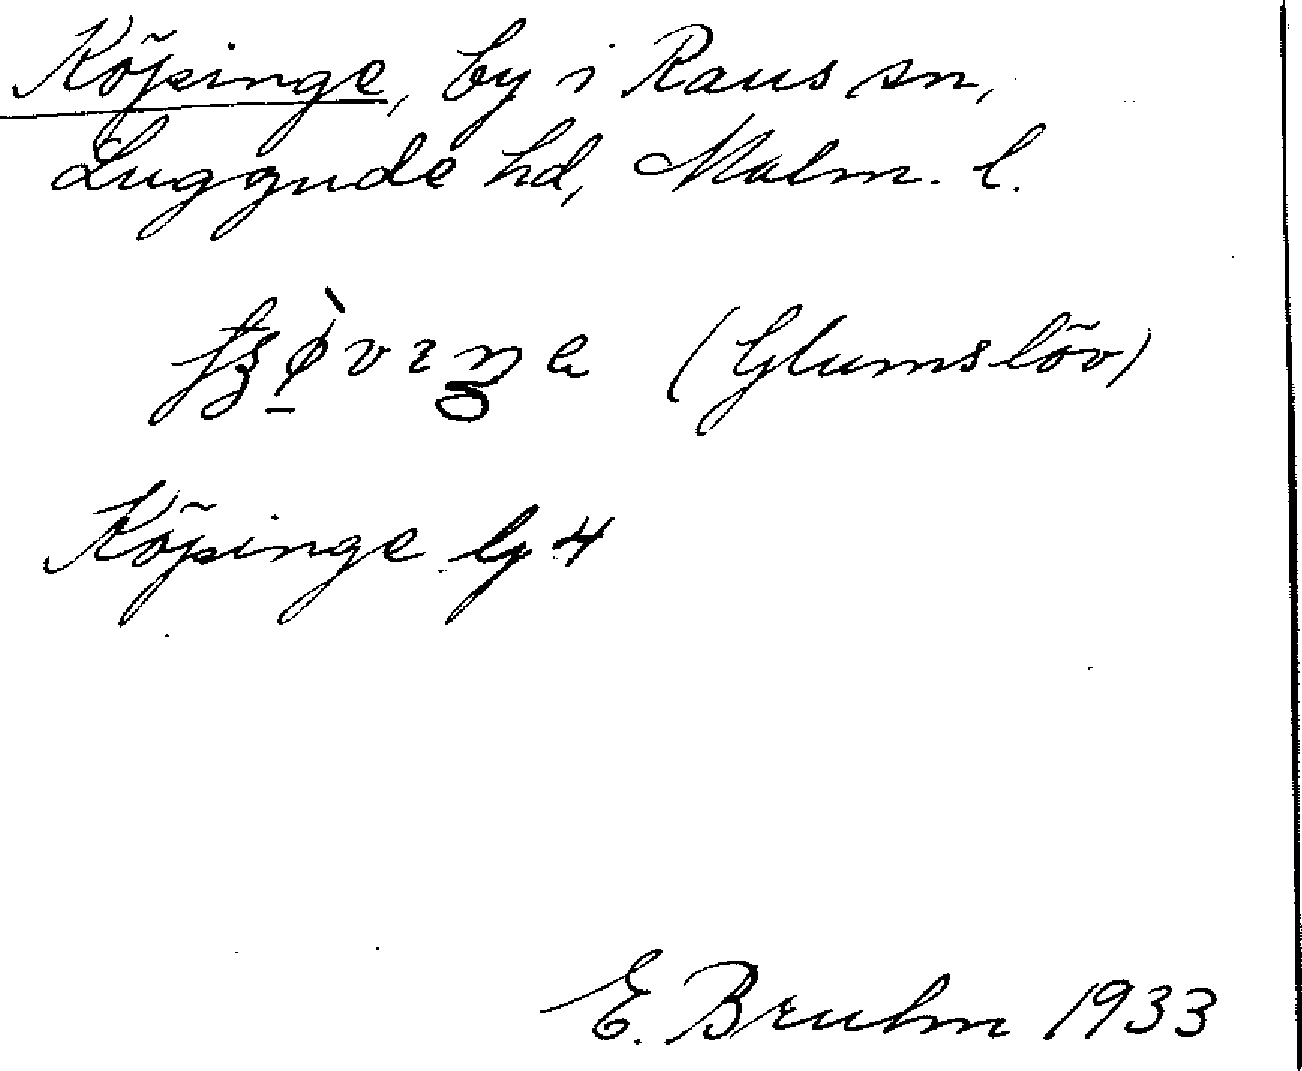 Köpinge, by i Raus sn,
Luggude hd, Malm. l.
(Glumslöv)
Köpinge by 4
E. Bruhn 1933